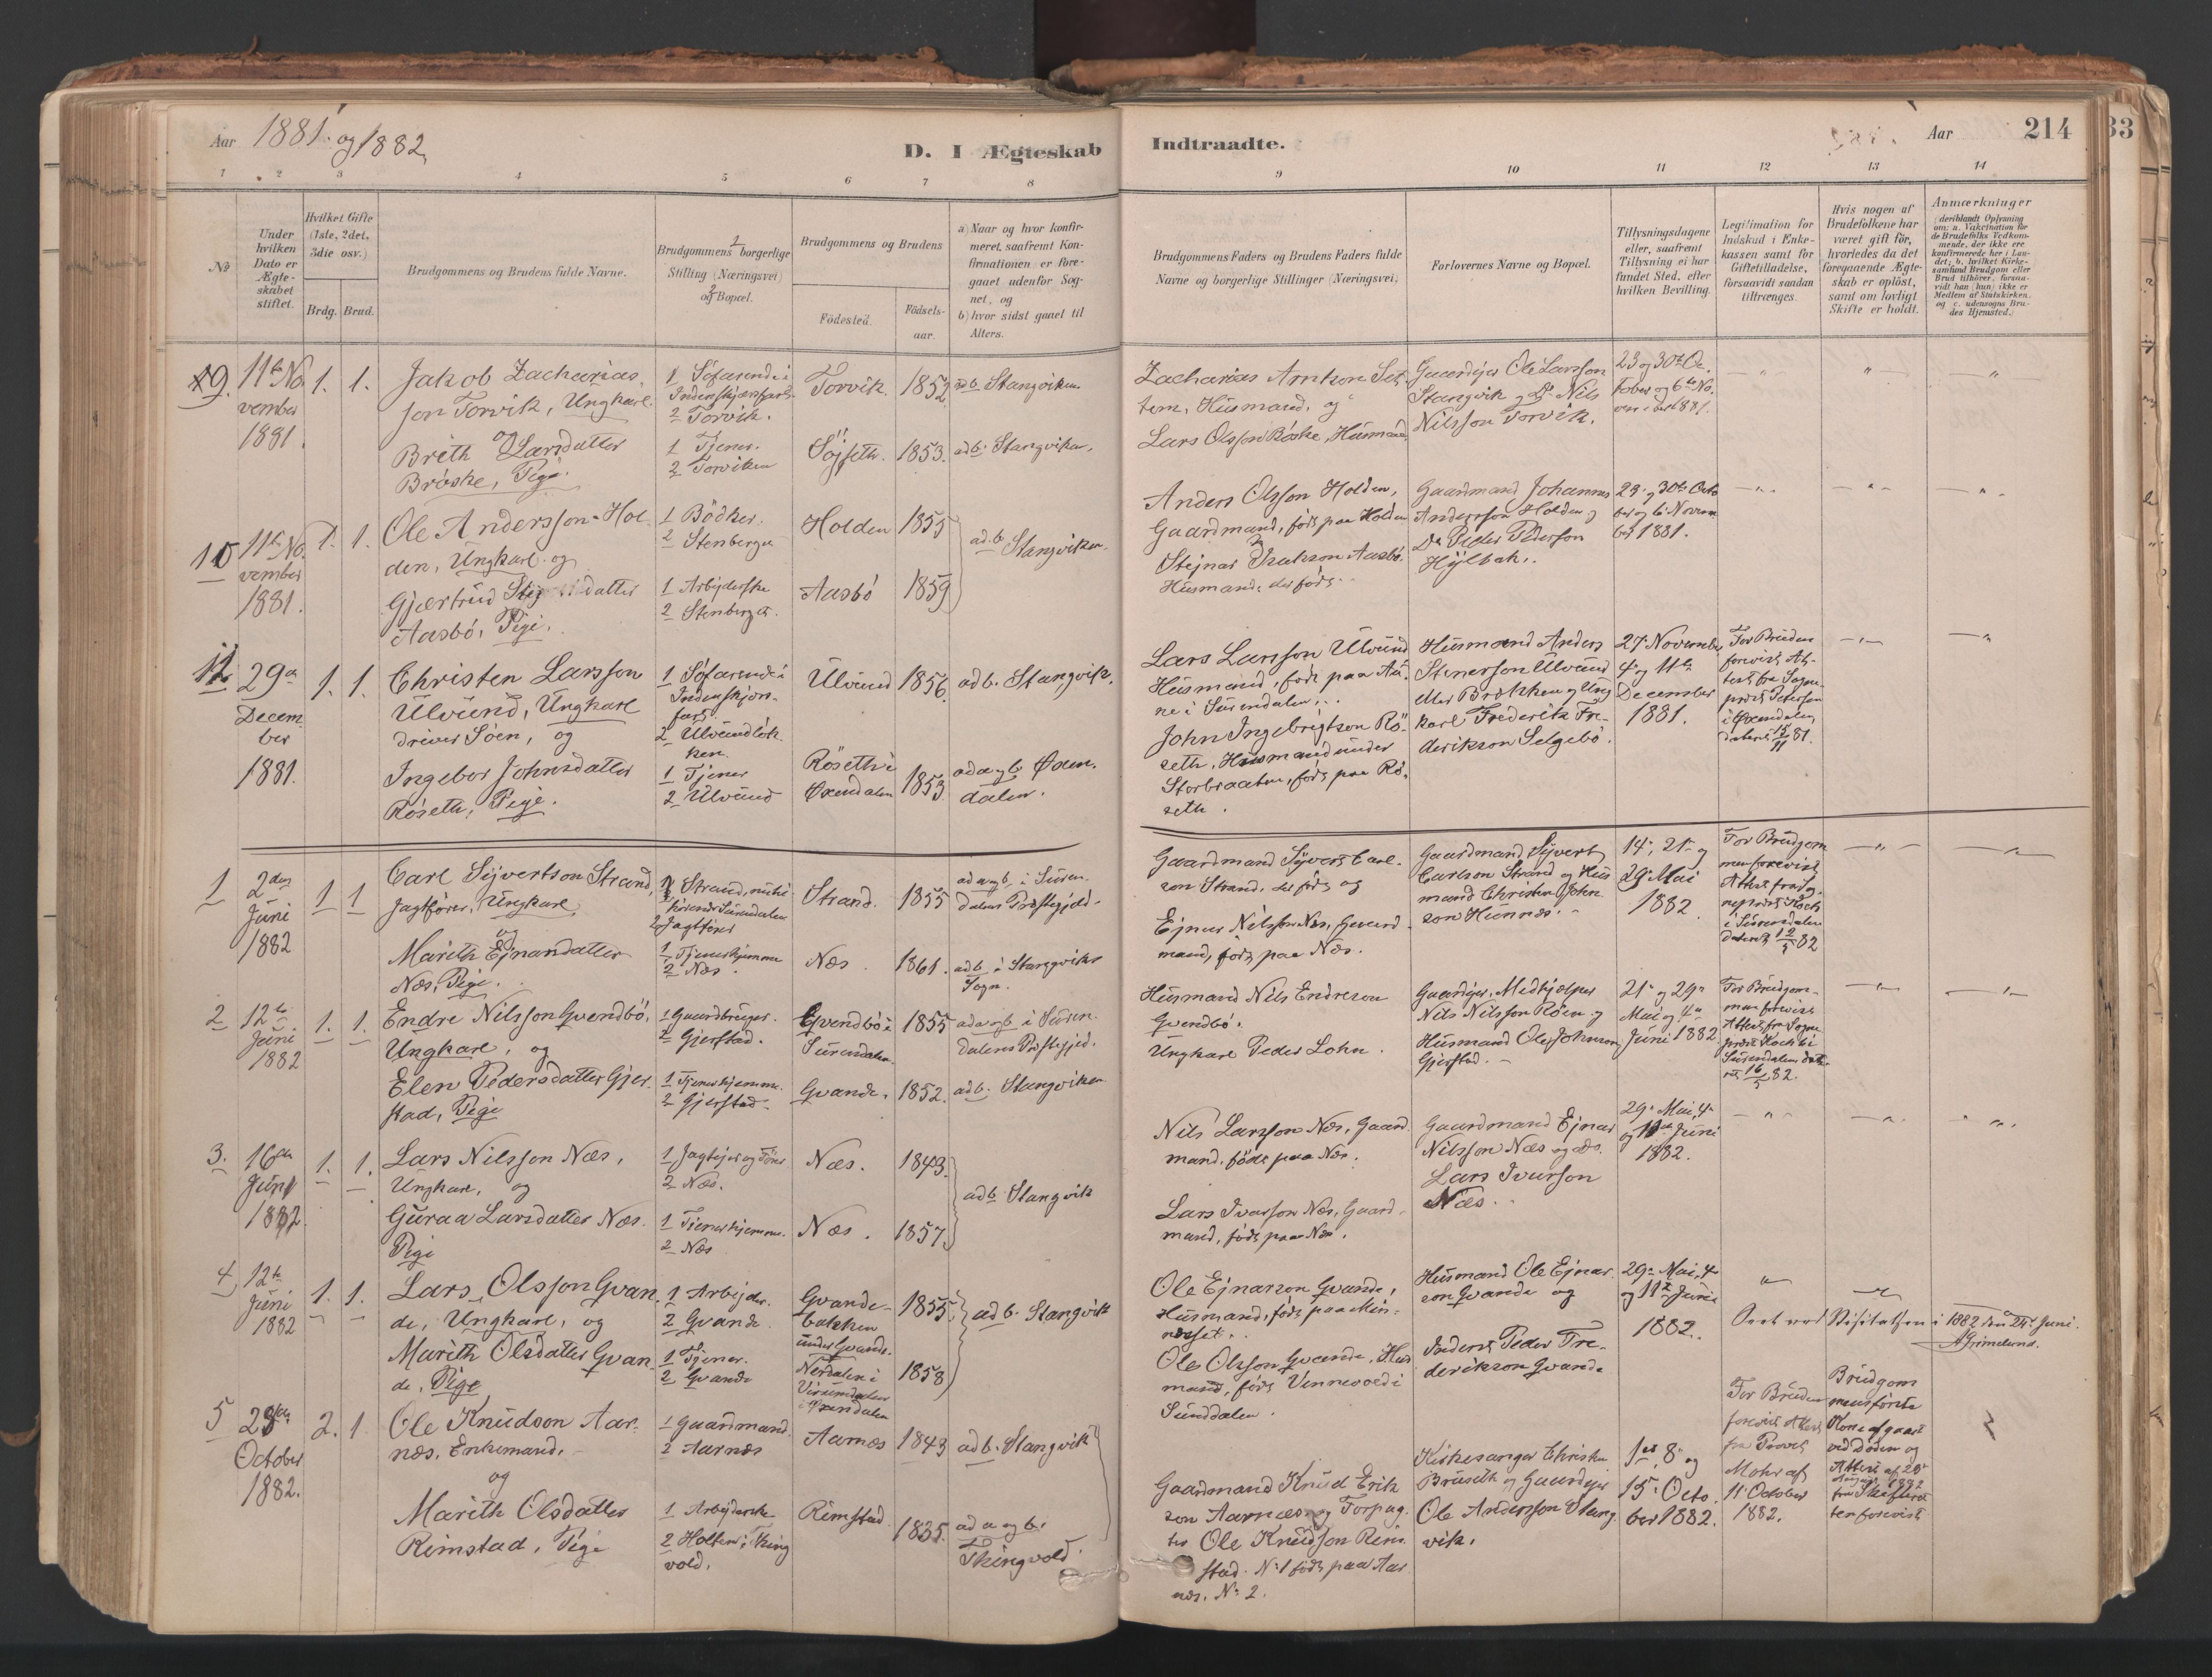 Aar 1881 og 1882
D. I Ægteskab Indtraadte.
Aar 214
33
1 2 3 4 5 6 7 8 9 10 11 12 13 14
No
Under hvilken Dato er Ægteskabet stiftet.
Hvilket Gifte (1ste, 2det, 3die osv.)
Brdg. Brud.
Brudgommens og Brudens fulde Navne.
Brudgommens borgerlige Stilling (Næringsvei) og Bopæl.
Brudgommens og Brudens
Födested.
Födselsaar.
a) Naar og hvor konfirmeret, saafremt Konfirmationen er foregaaet udenfor Sognet, og
b) hvor sidst gaaet til Alters.
Brudgommens Faders og Brudens Faders fulde Navne og borgerlige Stillinger (Næringsvei)
Forlovernes Navne og Bopæl.
Tillysningsdagene eller, saafremt Tillysning ei har fundet Sted, efter hvilken Bevilling.
Legitimation for Indskud i Enkekassen samt for Giftetilladelse, forsaavidt saadan tiltrænges.
Hvis nogen af Brudefolkene har været gift för, hvorledes da det foregaaende Ægteskab er oplöst, samt om lovligt Skifte er holdt.
Anmærkninger
(deriblandt Oplysning om: a. Vakcination for de Brudefolks Vedkommende, der ikke ere konfirmerede her i Landet; b. hvilket Kirkesamfund Brudgom eller Brud tilhörer, forsaavidt han (hun) ikke er Medlem af Statskirken, og c. udensogns Brudes Hjemsted.)
9. 11te November 1881. 1. 1.
Jakob Zachariasson Torvik, Ungkarl.
og
Brith Larsdatter
Bröske, Pige.
1 Söfarende i Indenskjersfart
2 Torvik.
1 Tjener.
2 Torviken
Torvik. 1852 ad b. Stangviken
Söjseth. 1853. ad b. Stangviken.
Zacharias Arntson Settem, Husmand, og
Lars Olsson Röske, Husmand
Gaardejer Ole Larsson
Stangvik og Do Nils
Nilsson Torvik.
23 og 30te October og 6te November 1881.
10 11te November 1881. 1. 1.
Ole Andersson Holden, Ungkarl og
Gjertrud datter
Aasbö, Pige.
1 Bödker.
2 Stenberget
1 Arbejderske
2 Stenberget.
Holden 1855
Aasbö 1859
ad b. Stangviken.
Anders Olsson Holden,
Gaardmand, födt paa Holden
Husmand, der födt.
Gaardmand Johannes
Andersson Holden og
Do Peder Pederson
23 og 30te October og 6te November 1881.
11. 29de December 1881. 1. 1.
Christen Larsson
Ulvund, Ungkarl
driver Söen, og
Ingebor Johnsdatter
Röseth, Pige.
1 Söfarende i Indenskjersfart
2 Ulvundlökken.
1 Tjener
2 Ulvund
Ulvund 1856. ad b. Stangvik.
Röseth i Öxendalen 1853. ad a og b. Öxendalen.
Lars Larsson Ulvund
Husmand, födt paa Aune i Surendalen,
John Ingebrigtson Röseth, Husmand under
Storbraaten, födt paa Röseth.
Husmand Anders
Stenerson Ulvund
eller Brekken og Ungkarl Frederik Frederikson Selgebö.
27. November 4de og 11te December 1881.
For Bruden forevist Attest fra Sogneprest Petersen i Öxendalen, dateret 15/11 81.
1 2den Juni 1882 1 1
Carl Sijvertson Strand,
Jagtförer, Ungkarl,
og
Marith Ejnarsdatter
Næs, Pige.
2 Jagtförer
1 Tjener hjemme
2 Næs.
Strand. 1855 ad a og b. i Surendalens Præstegjeld.
Næs. 1861. ad b. i Stangviks Sogn.
Gaardmand Sijvert Carlson Strand, der födt og
Ejnar Nilsson Næs, Gaardmand, födt paa Næs.
Gaardmand Sijvert
Carlson Strand og Husmand Christen Johnson Hunnes.
14., 21. og 29. Mai 1882.
For Brudgommen forevist Attest fra Sogneprest Koch i Surendalen dateret 12/5 82
2 12te Juni 1882 1. 1.
Endre Nilsson Qvendbö,
Ungkarl, og
Elen Pedersdatter Gjerstad, Pige
1 Gaardbruger.
2 Gjerstad.
1 Tjener hjemme.
2 Gjerstad.
Qvendbö i Surendalen 1855 ad a og b i Surendalens Præstegjeld.
Qvande. 1852. ad b. Stangviken
Husmand Nils Endreson
Qvendbö.
Ungkarl Peder Lohn.
Gaardejer, Medhjelper
Nils Nilsson Röen og
Husmand Ole Johnson
Gjerstad.
21. og 29. Mai og 4. Juni 1882
For Brudgommen forevist Attest fra Sogneprest Koch i Surendalen dateret 16/5 82.
3. 16de Juni 1882. 1. 1.
Lars Nilsson Næs,
Ungkarl, og
Guraa Larsdatter Næs.
Pige
1 Jagtejer og Förer
2 Næs.
1 Tjener hjemme.
2 Næs
Næs. 1849.
Næs. 1857.
ad b. Stangvik
Nils Larsson Næs, Gaardmand, födt paa Næs.
Lars Ivarson Næs, Gaardmand, födt paa Næs.
Gaardmand Ejnar
Nilsson Næs og do.
Lars Ivarson
Næs.
29. Mai, 4. og 11te Juni 1882.
4 12te Juni 1882 1. 1.
Lars Olsson Qvande, Ungkarl, og
Marith Olsdatter Qvande, Pige
1 Arbejder.
2 Qvande.
1 Tjener.
2 Qvande
Qvandebakken under Qvande. 1855.
Nerdalen i Virumdalen i Öxendalen 1858
ad b. Stangvik
Ole Ejnarson Qvande,
Husmand, födt paa
Ole Olsson Qvande, Husmand, födt Vennevold i
Sunddalen.
Husmand Ole Ejnarson Qvande og
Inderst Peder Frederikson Qvande
29. Mai, 4. og 11te Juni 1882.
Seet ved Visitatsen i 1882 den 24. Juni.
Grimelund.
5 28de October 1882. 2. 1.
Ole Knudson Aarnæs, Enkemand.
og
Marith Olsdatter
Rimstad, Pige
1 Gaardmand.
2 Aarnæs
1 Arbejderske
2 Holten i Thingvold.
Aarnæs 1843 ad b. Stangvik
Rimstad. 1835. ad a og b. Thingvold.
Gaardmand Knud Erikson Aarnæs og Forpagter Ole Knudson Rimstad. No 1 födt paa Aarnæs. No 2.
Kirkesanger Christen
Bruseth og Gaardejer
Ole Andersson Stangvik.
1ste, 8. og 15. October 1882.
For Bruden forevist Attest fra Provst Mohr af 11. October 1882.
Brudgommens förste Kone afgaaet ved Döden og Attest af 28. August 1882 fra Skifteretten forevist